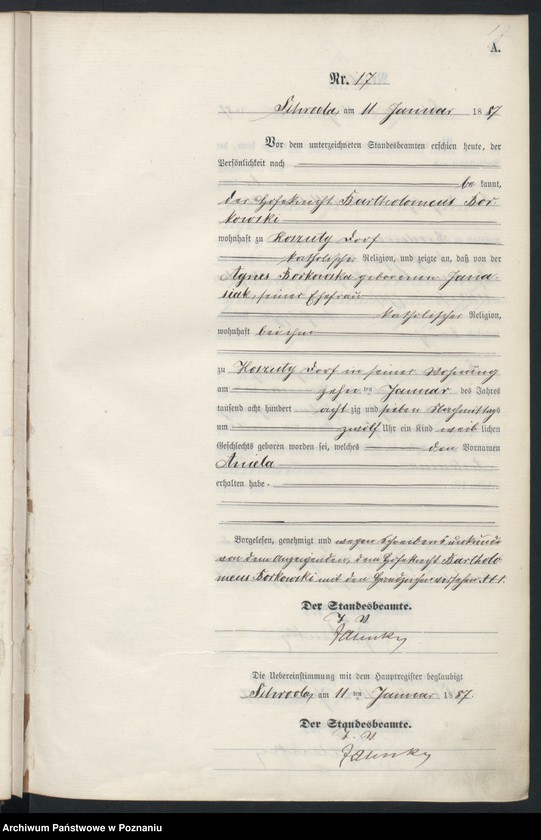 A.
Nr. 17
Schroda, am 11 Januar 1887
Vor dem unterzeichneten Standesbeamten erschien heute, der
Persönlichkeit nach
be kannt,
der Hofeknecht Bartholomeus Bor-
kowski
wohnhaft zu Koszuty Dorf
katholischer Religion, und zeigte an, daß von der
Agnes Borkowska geborenen Jana-
siak, seiner Ehefrau
katholischer Religion,
wohnhaft bei ihm
zu Koszuty Dorf in seiner Wohnung
am zehn ten Januar des Jahres
tausend acht hundert acht zig und sieben Nachmittags
um zwölf Uhr ein Kind weib lichen
Geschlechts geboren worden sei, welches den Vornamen
Aniela
erhalten habe.
Vorgelesen, genehmigt und wegen Schreibensunkunde
von dem Anzeigenden, dem Hofeknecht Bartholo
meus Borkowski mit den Handzeichen versehen. †††.
Der Standesbeamte.
J. V.
Die Uebereinstimmung mit dem Hauptregister beglaubigt
Schroda, am 11 ten Januar 1887.
Der Standesbeamte.
J. V.
Archiwum Państwowe w Poznaniu